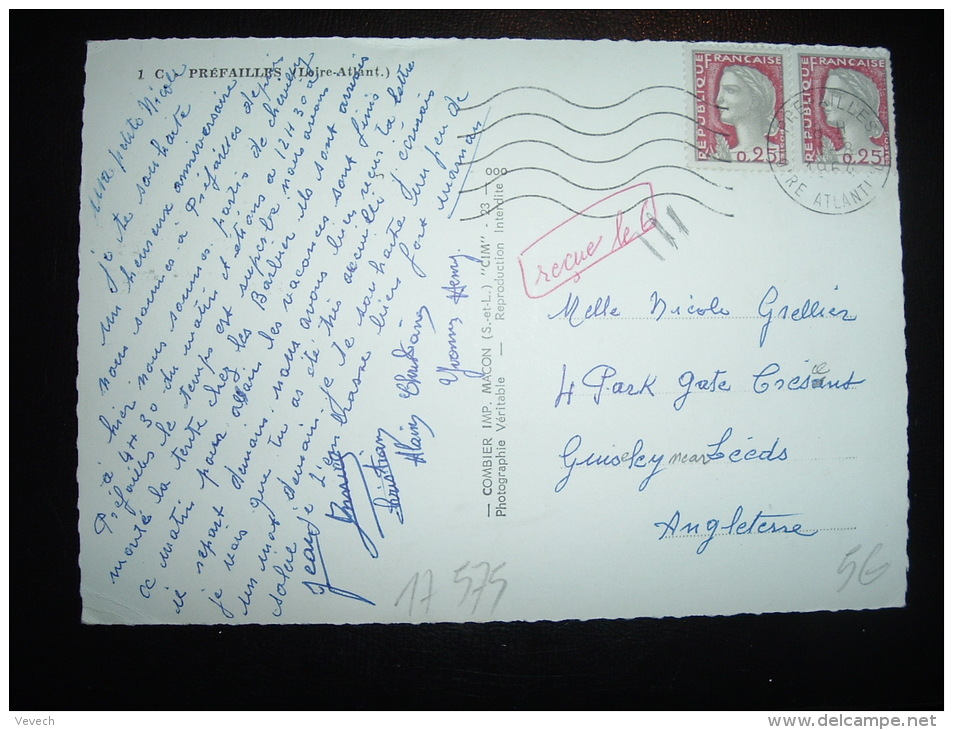 1 C PRÉFAILLES (Loire-Atlant.)
ma petite Nicole
je te souhaite
un heureux anniversaire
nous sommes à Préfailles depuis
hier nous sommes partis de
à 4H 30 du matin et étions à 12H 30 à
Préfailles le temps est superbe nous avons
monté la tente chez les Barbier ils sont arrivés
ce matin pour les vacances sont finis
il repart demain. nous avons bien reçus ta lettre
je vois que tu as été très accueillie j'écrirais
un mot demain je te souhaite un peu de
bien fort maman
Jean
Christian
Alain Christiane
Yvonne Henry
— COMBIER IMP. MACON (S.-et-L.) "CIM" - 23 —
Photographie Véritable — Reproduction Interdite
REPUBLIQUE FRANÇAISE
0,25
REPUBLIQUE FRANÇAISE
0,25
LOIRE ATLANT
recue le 6
Melle Nicole Grellier
4 Park Gate Cresent
Guiseley near Leeds
Angleterre
17 575
5G
Vevech
www.delcampe.net